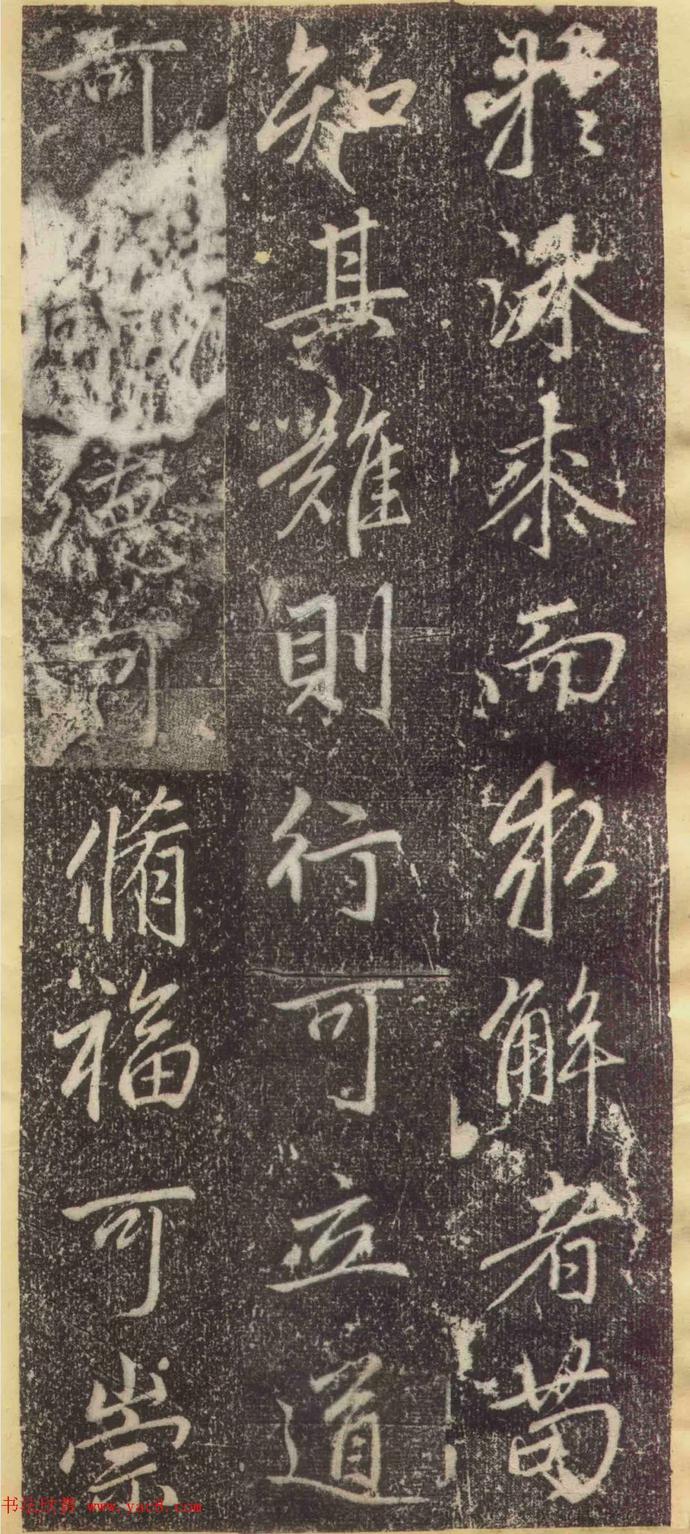 於深而求解者苟
知其難則行可立道
可德可脩福可崇
书法欣赏 www.yac8.com